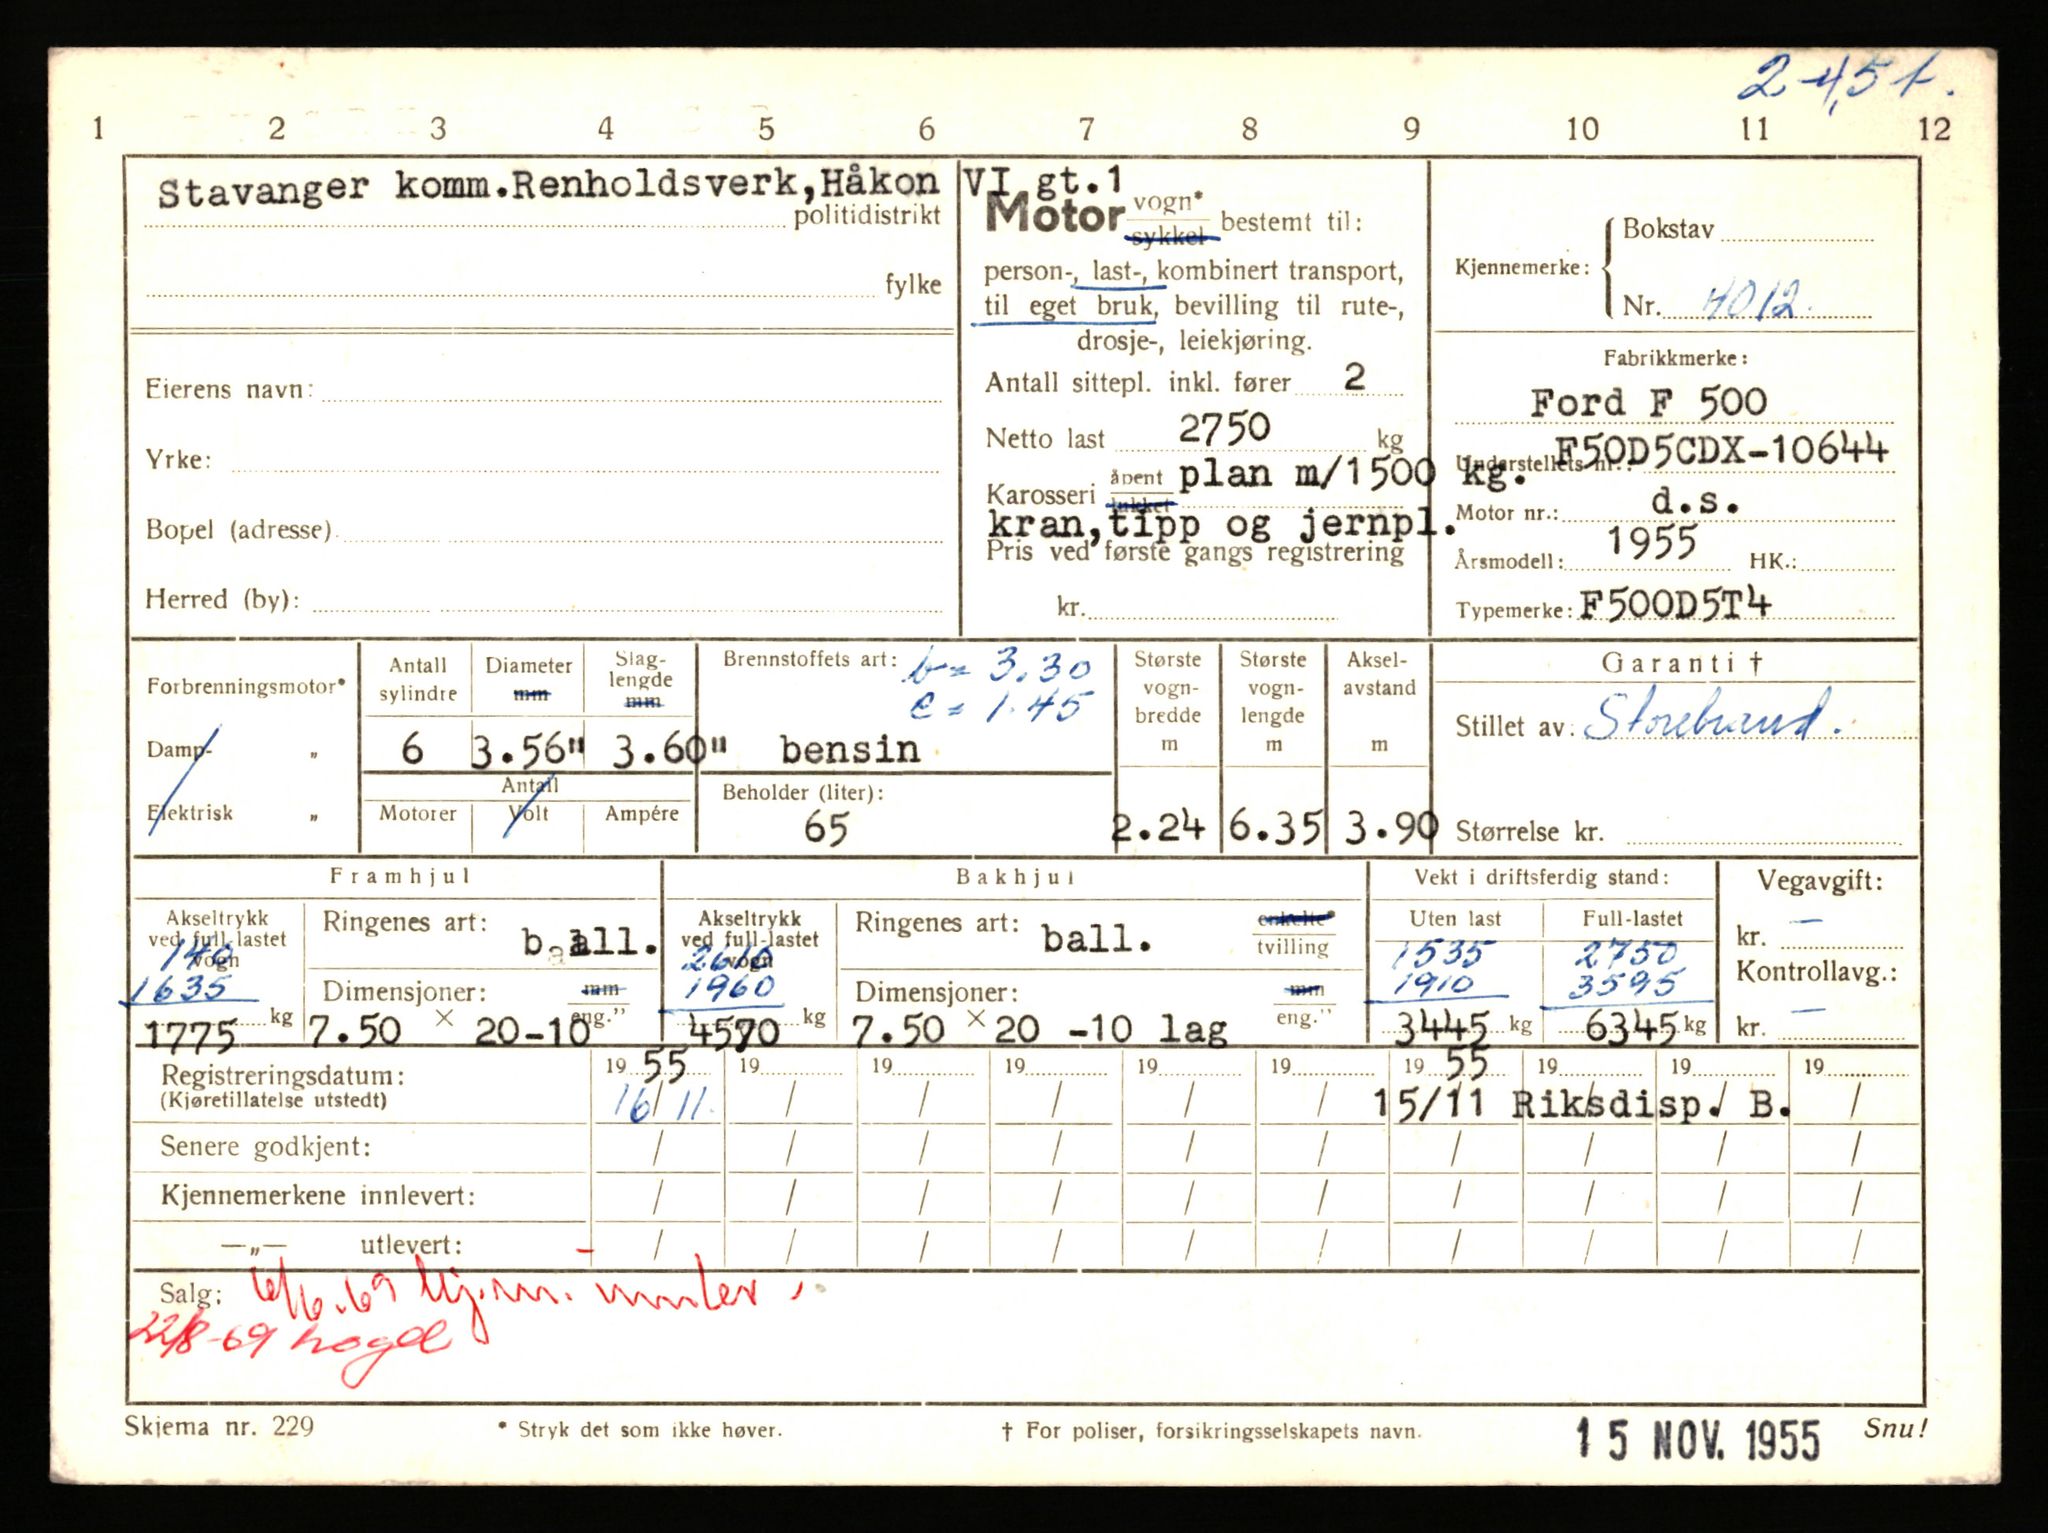 2-4,5 t.
1 2 3 4 5 6 7 8 9 10 11 12
Stavanger komm.Renholdsverk,Håkon VI gt.1
politidistrikt
fylke
Eierens navn:
Yrke:
Bopel (adresse)
Herred (by):
Motor vogn* sykkel bestemt til:
person-, last-, kombinert transport,
til eget bruk, bevilling til rute-,
drosje-, leiekjøring.
Antall sittepl. inkl. fører 2
Netto last 2750 kg
Karosseri åpent lukket plan m/1500 kg.
kran,tipp og jernpl.
Pris ved første gangs registrering
kr.
Kjennemerke: Bokstav
Nr. 4012.
Fabrikkmerke:
Ford F 500
Understellets nr.: F50D5CDX-10644
Motor nr.: d.s.
Årsmodell: 1955 HK.:
Typemerke: F500D5T4
Forbrenningsmotor*
Damp- „
Elektrisk „
Antall sylindre
Diameter mm
Slaglengde mm
6 3.56" 3.60"
Antall
Motorer Volt Ampére
Brennstoffets art: b = 3.30
e = 1.45
bensin
Beholder (liter):
65
Største vognbredde m
2.24
Største vognlengde m
6.35
Akselavstand m
3.90
Garanti †
Stillet av: Storebrand.
Størrelse kr.
Framhjul
Akseltrykk ved full-lastet vogn
140
1635
1775 kg
Ringenes art: ball.
Dimensjoner: mm eng."
7.50 × 20-10
Bakhjul
Akseltrykk ved full-lastet vogn
2610
1960
4570 kg
Ringenes art: ball. enkelte* tvilling
Dimensjoner: mm eng."
7.50 × 20 -10 lag
Vekt i driftsferdig stand:
Uten last Full-lastet
1535 2750
1910 3595
3445 kg 6345 kg
Vegavgift:
kr. —
Kontrollavg.:
kr. —
Registreringsdatum:
(Kjøretillatelse utstedt)
19 55 19 19 19 19 19 19 55 19 19 19
16/11. / / / / / 15/11 Riksdisp. B. /
Senere godkjent: / / / / / / / / / /
Kjennemerkene innlevert: / / / / / / / / / /
—„— utlevert: / / / / / / / / / /
Salg: 6/6.69 kj.m. innlev.
22/8-69
Skjema nr. 229
* Stryk det som ikke høver.
† For poliser, forsikringsselskapets navn.
15 NOV. 1955
Snu!